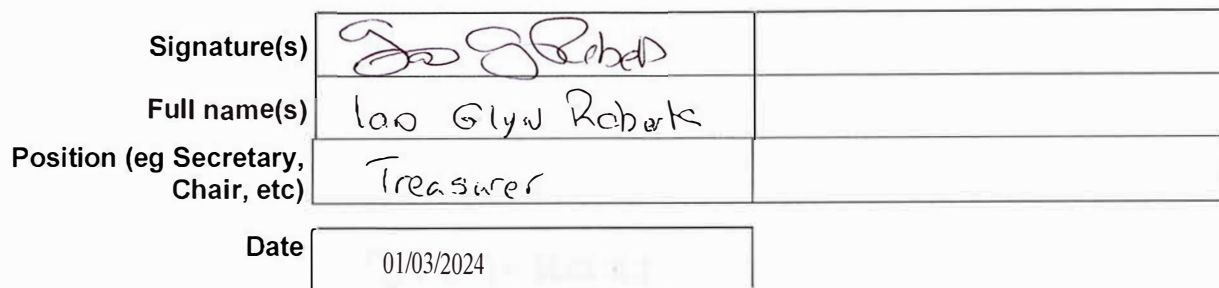 Signature(s)
Full name(s) Ian Glyn Roberts
Position (eg Secretary,
Chair, etc) Treasurer
Date 01/03/2024